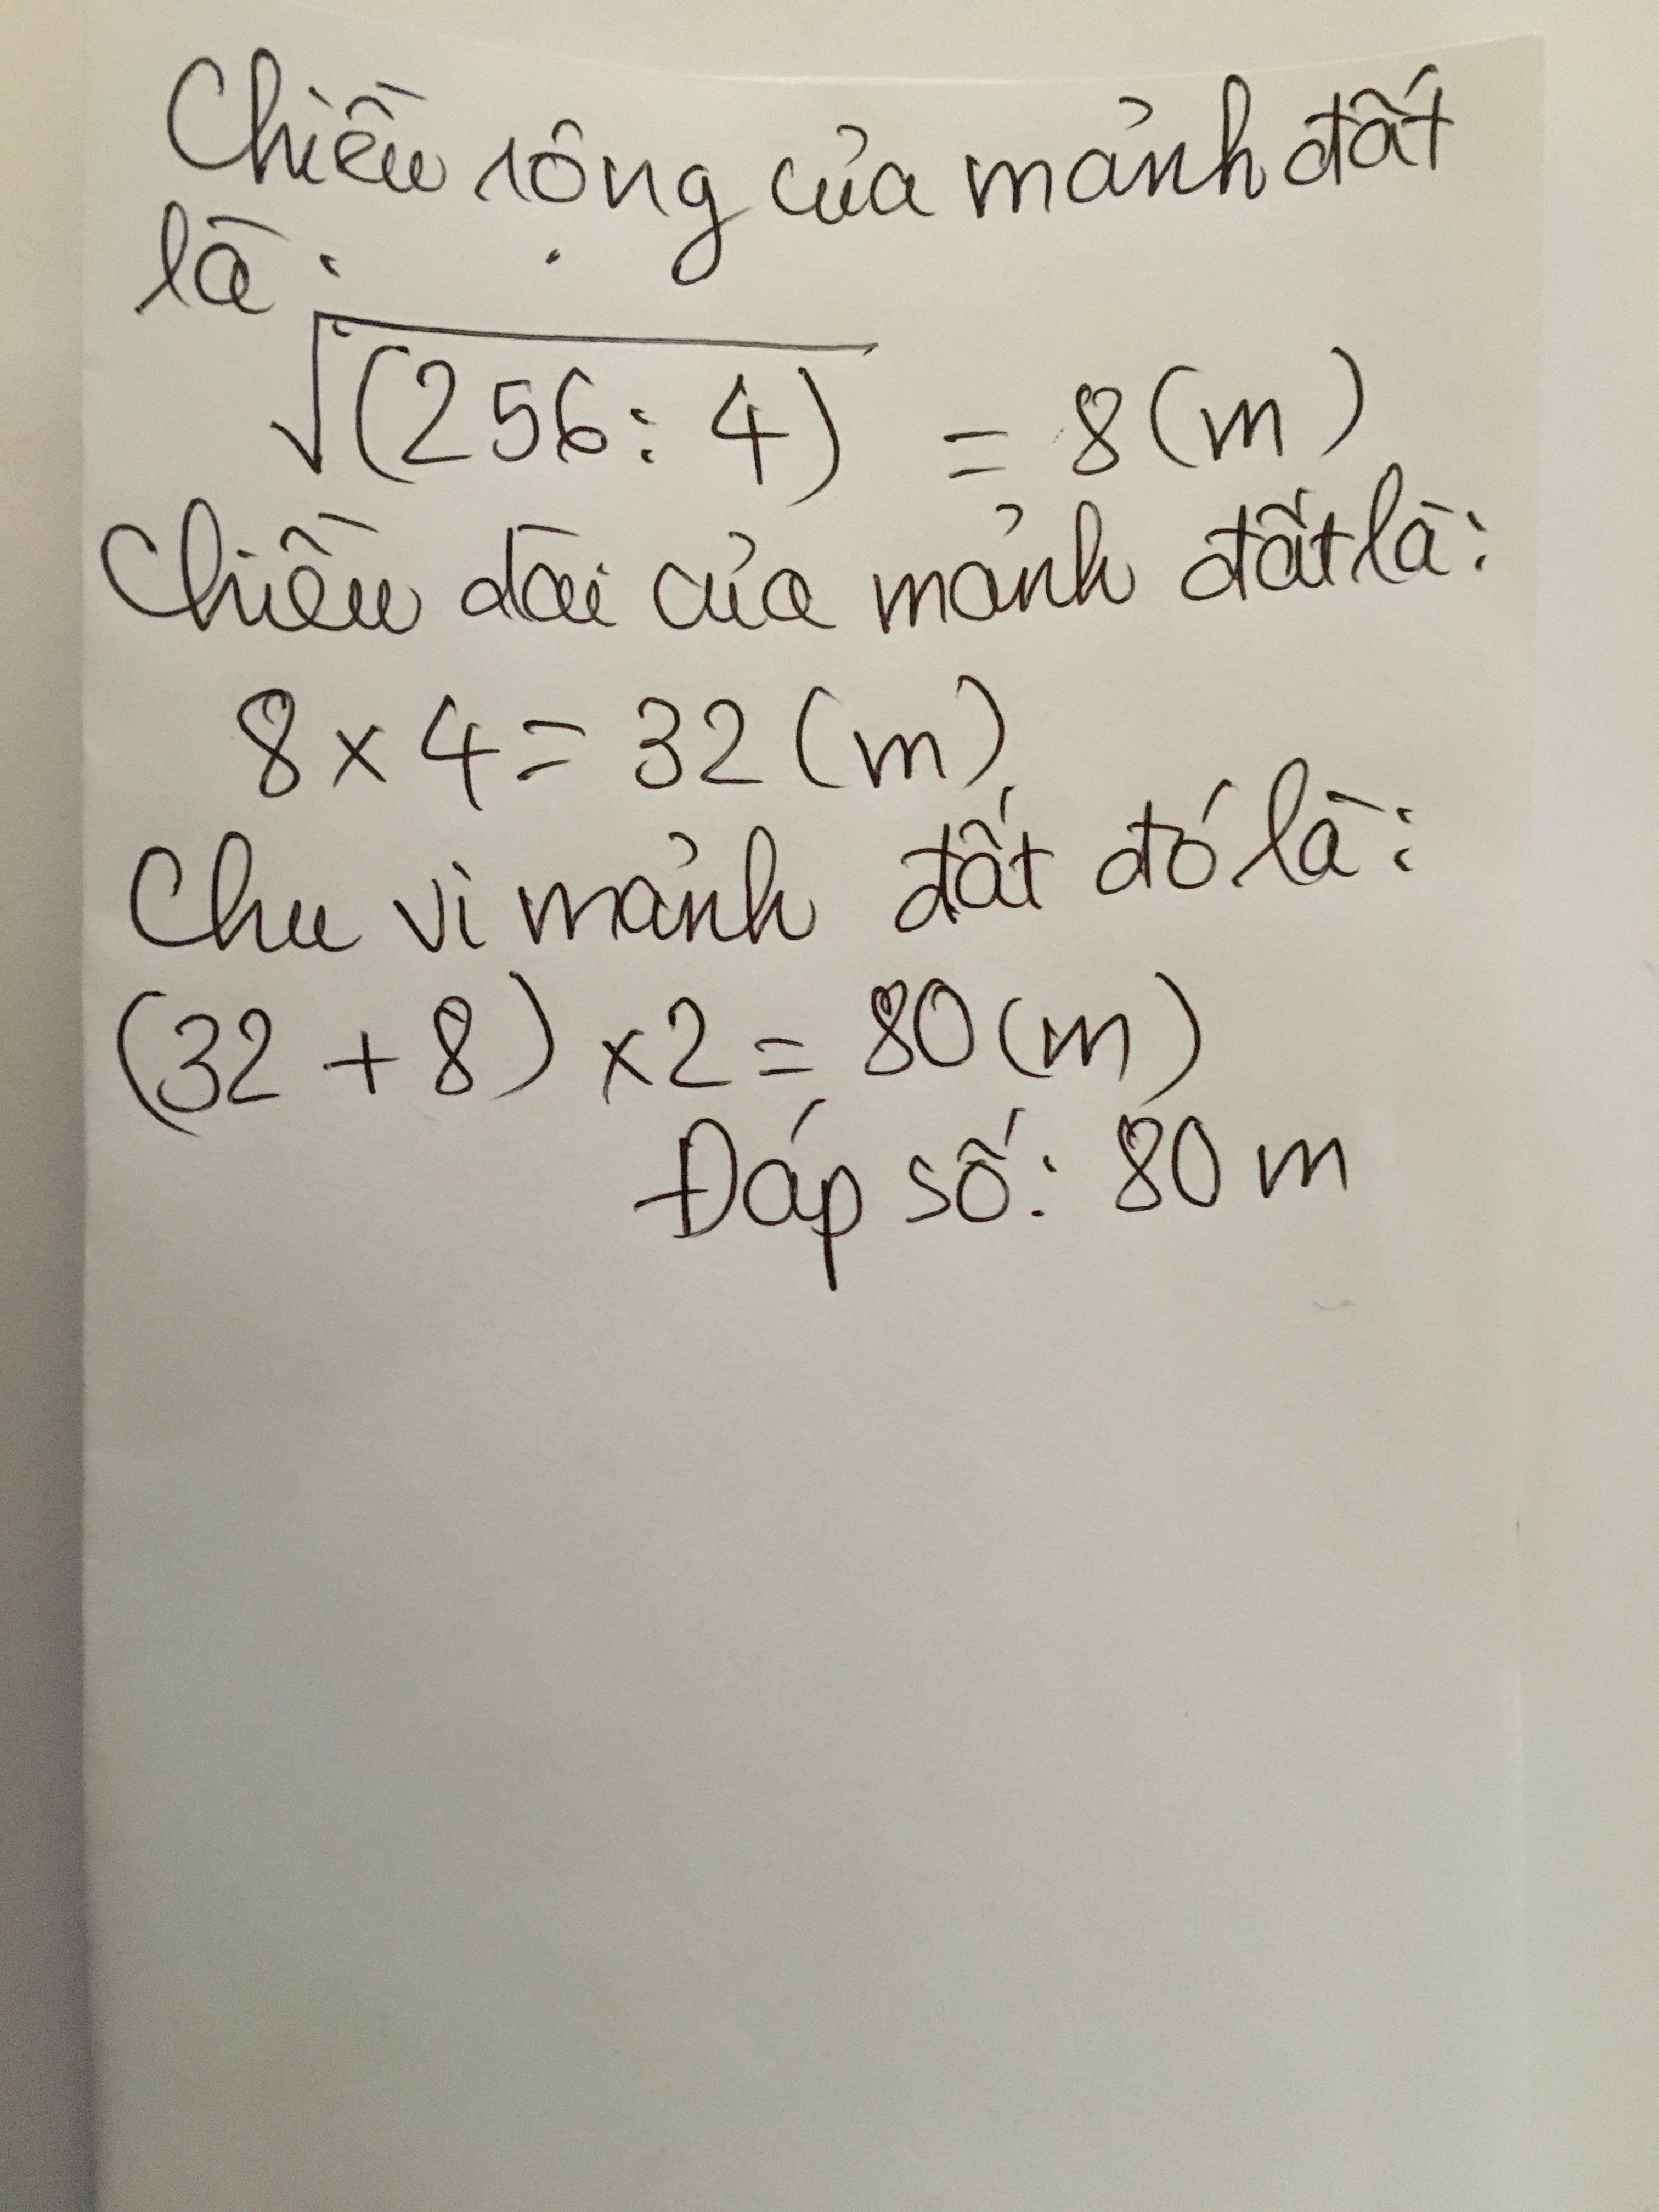 Chiều rộng của mảnh đất
là:
√(256 : 4) = 8 (m)
Chiều dài của mảnh đất là:
8 x 4 = 32 (m)
Chu vi mảnh đất đó là:
(32 + 8) x 2 = 80 (m)
Đáp số: 80 m